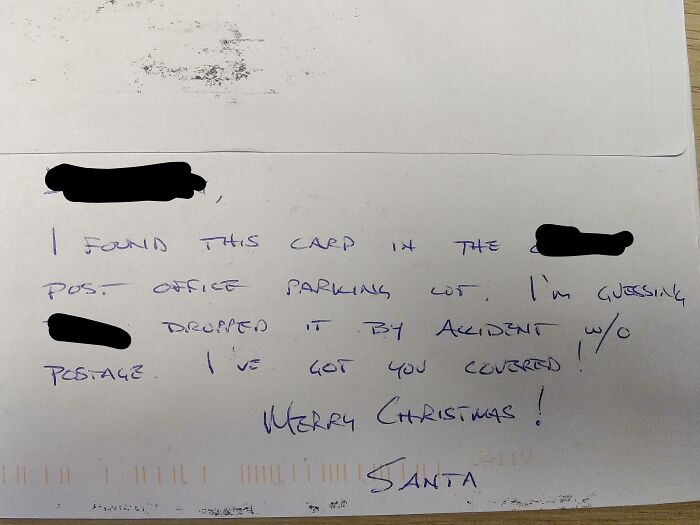 ,
I FOUND THIS CARD IN THE
POST OFFICE PARKING LOT. I'M GUESSING
DROPPED IT BY ACCIDENT W/O
POSTAGE. I'VE GOT YOU COVERED!
MERRY CHRISTMAS!
SANTA